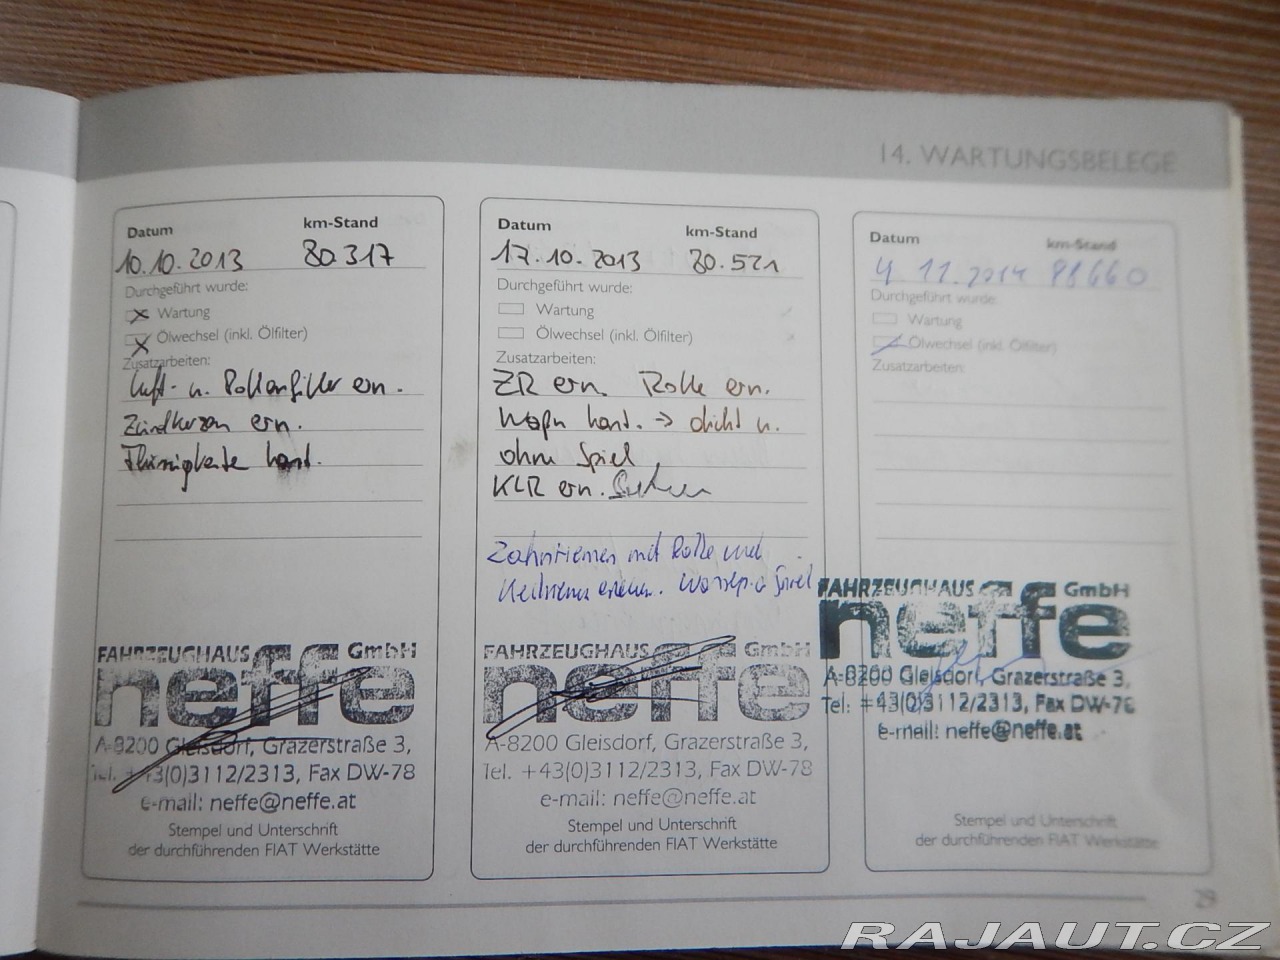 14. WARTUNGSBELEGE
Datum km-Stand
10.10.2013 80.317
Durchgeführt wurde:
Wartung
Ölwechsel (inkl. Ölfilter)
Zusatzarbeiten:
Luft- u. Pollenfilter ern.
Zündkerzen ern.
Flüssigkeite kont.
FAHRZEUGHAUS GmbH
neffe
A-8200 Gleisdorf, Grazerstraße 3,
Tel. +43(0)3112/2313, Fax DW-78
e-mail: neffe@neffe.at
Stempel und Unterschrift
der durchführenden FIAT Werkstätte
Datum km-Stand
17.10.2013 80.521
Durchgeführt wurde:
Wartung
Ölwechsel (inkl. Ölfilter)
Zusatzarbeiten:
ZR ern. Rolle ern.
Wapu kont. → dicht u.
ohne Spiel
KLR ern.
Zahnriemen mit Rolle und
Keilriemen
FAHRZEUGHAUS GmbH
neffe
A-8200 Gleisdorf, Grazerstraße 3,
Tel. +43(0)3112/2313, Fax DW-78
e-mail: neffe@neffe.at
Stempel und Unterschrift
der durchführenden FIAT Werkstätte
Datum km-Stand
4 11.2014 98660
Durchgeführt wurde:
Wartung
Ölwechsel (inkl. Ölfilter)
Zusatzarbeiten:
FAHRZEUGHAUS GmbH
neffe
A-8200 Gleisdorf, Grazerstraße 3,
Tel: +43(0)3112/2313, Fax DW-78
e-mail: neffe@neffe.at
Stempel und Unterschrift
der durchführenden FIAT Werkstätte
29
RAJAUT.CZ